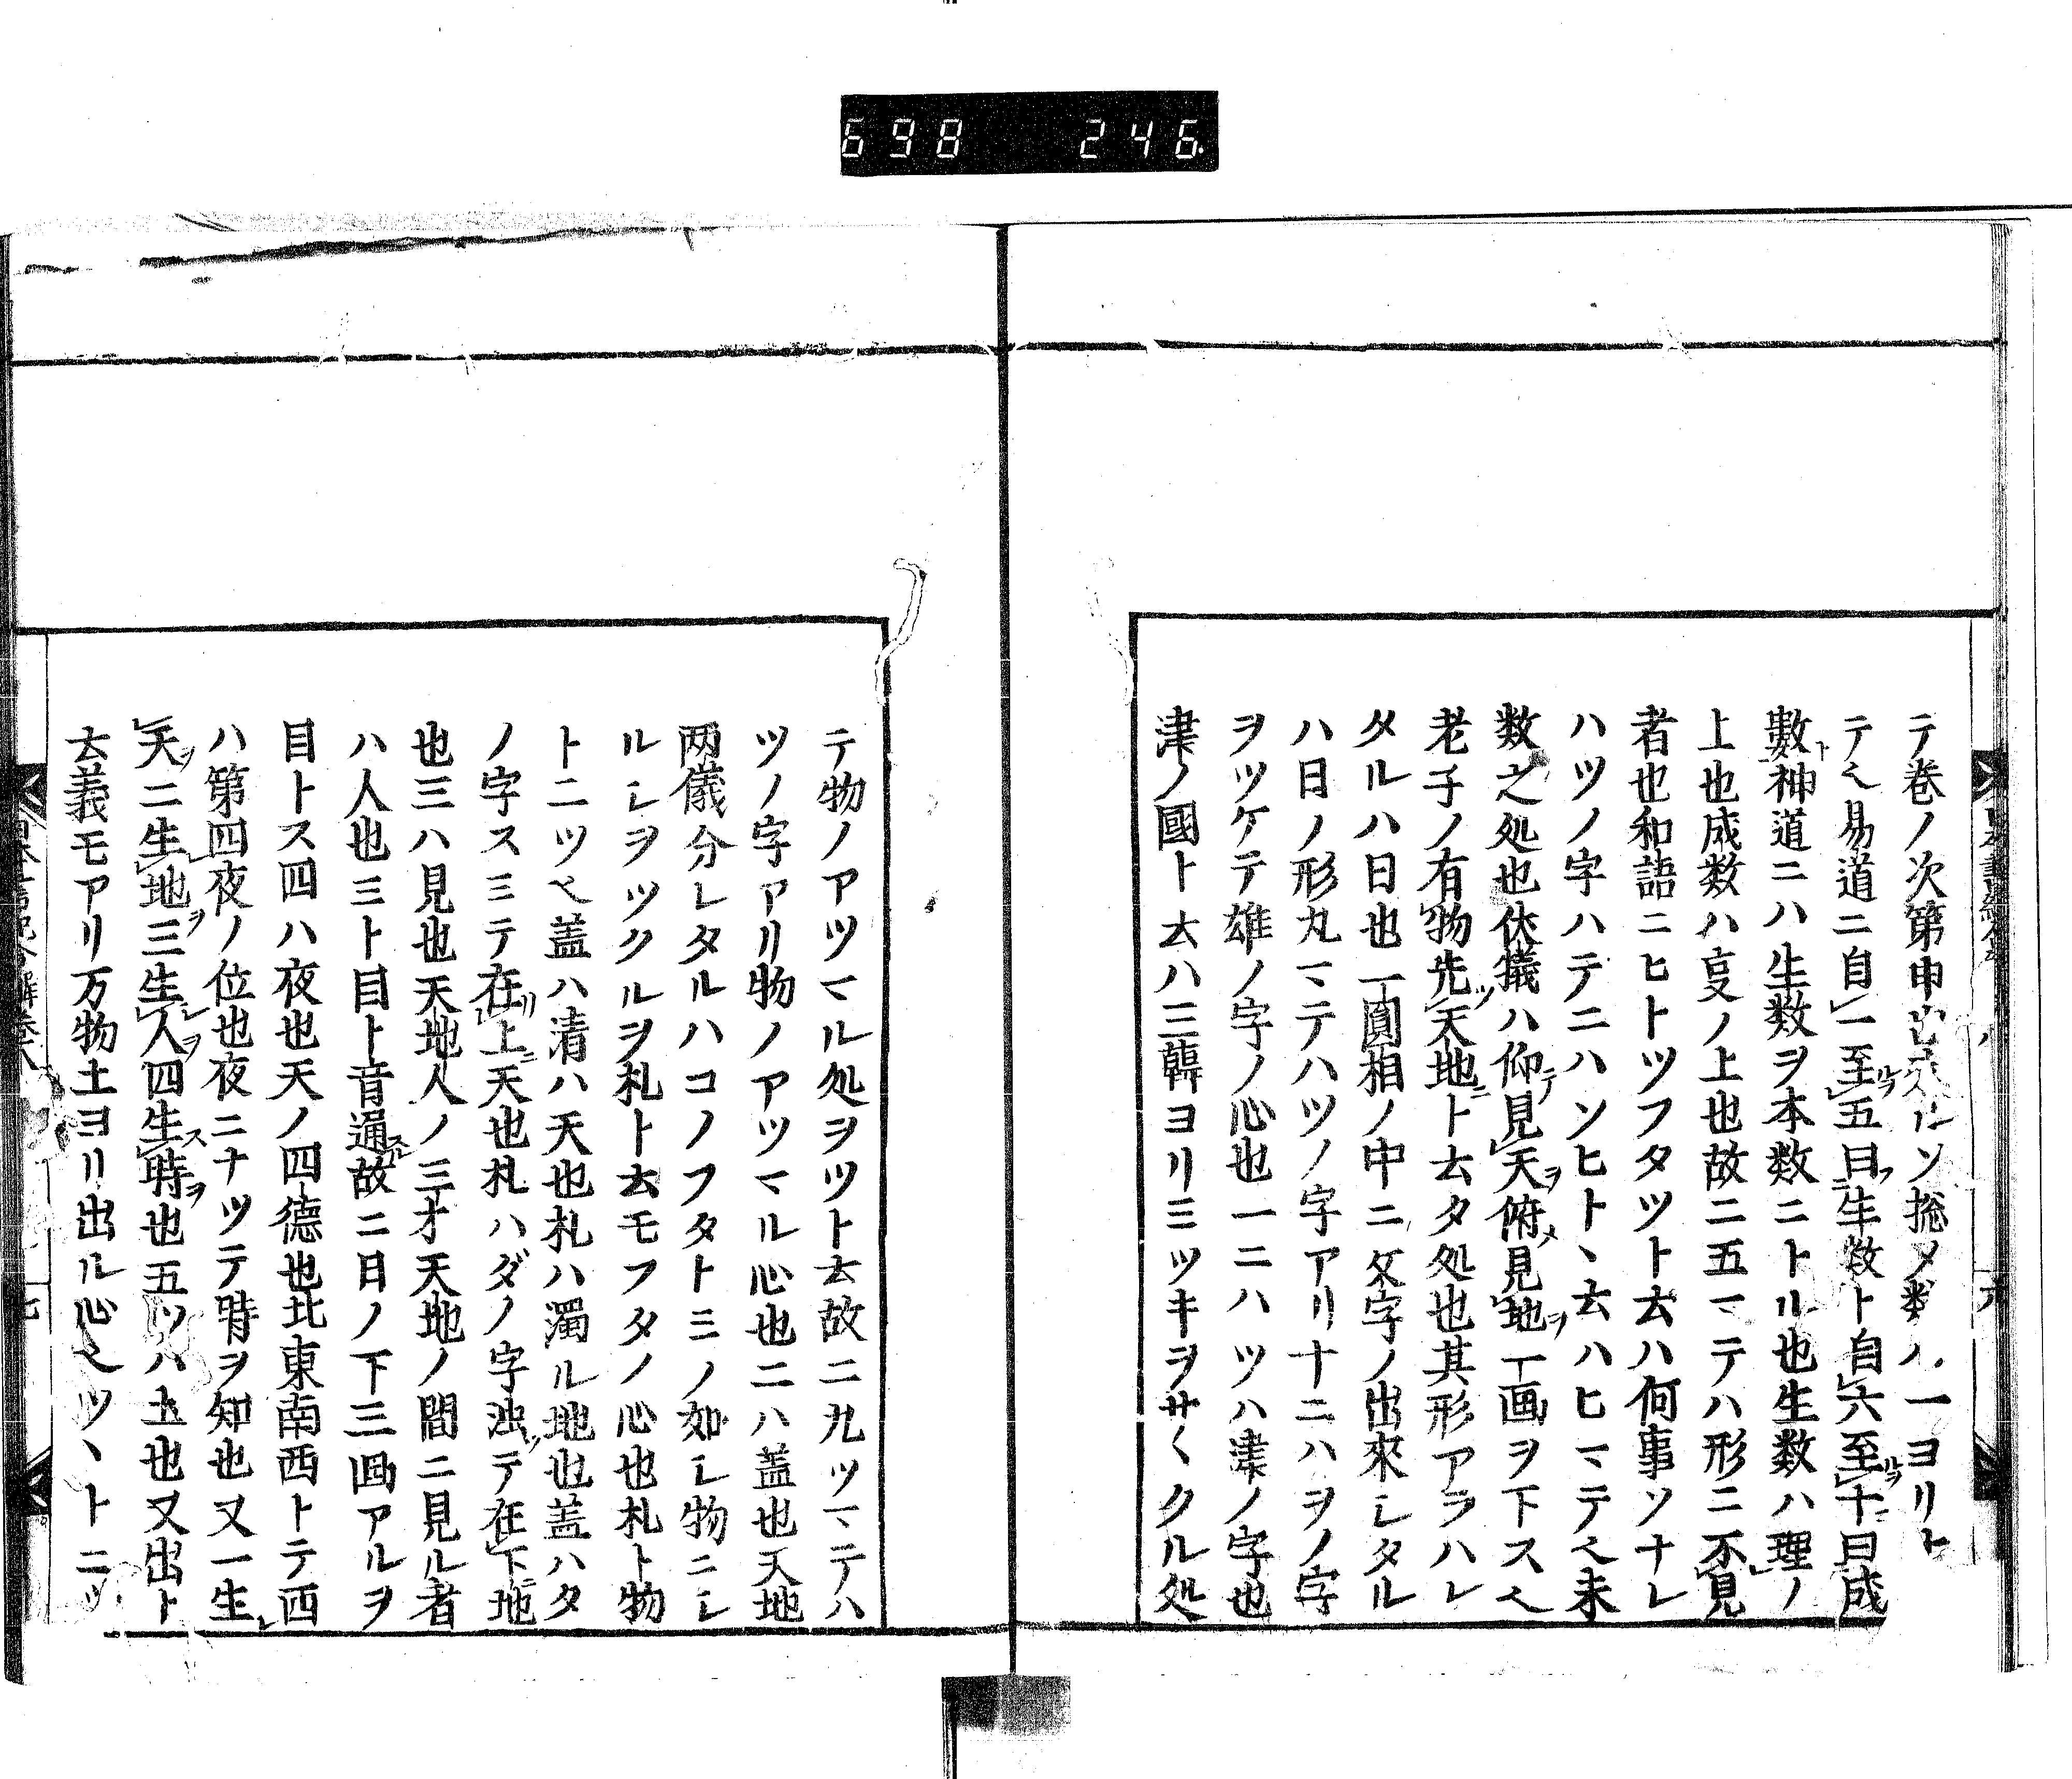 698 246
テ巻ノ次第申ルソ捴メ数ハ一ヨリト
テヘ易道ニ自一至ルヲ五曰フ生数ト自六至ルヲ十曰成
數ト神道ニハ生数ヲ本数ニトル也生数ハ理ノ
上也成数ハ叓ノ上也故ニ五マテハ形ニ不見
者也和語ニヒトツフタツト云ハ何事ソナレ
ハツノ字ハテニハソヒトヽ云ハヒマテヘ未
数之処也伏犠ハ仰テ見天ヲ俯メ見地ヲ一画ヲ下スヘ
老子ノ有物先ツ天地ニト云タ処也其形アラハレ
タルハ日也一圓相ノ中ニ文字ノ出來レタル
ハ日ノ形丸マテハツノ字アリ十ニハヲノ字
ヲツケテ雄ノ字ノ心也一ニハツハ津ノ字也
津ノ國ト云ハ三韓ヨリミツキヲサヽクル処
テ物ノアツマル処ヲツト云故ニ九ツマテハ
ツノ字アリ物ノアツマル心也二ハ蓋也天地
两儀分レタルハコノフタトミノ如レ物ニレ
ルレヲツクルヲ札ト云モフタノ心也札ト物
トニツヘ蓋ハ清ハ天也札ハ濁ル地也蓋ハタ
ノ字スミテ在リ上ニ天也札ハダノ字濁ツテ在下地
也三ハ見也天地人ノ三才天地ノ間ニ見ル者
ハ人也ミト目ト音通スル故ニ日ノ下三画アルヲ
目トス四ハ夜也天ノ四德也北東南西トテ四
ハ第四夜ノ位也夜ニナツテ時ヲ知也又一生レ
天ヲ二生レ地ヲ三生レ人ヲ四生ス時ヲ也五ツハ土也又出ト
云義モアリ万物土ヨリ出ル心ヘツヽトニツ